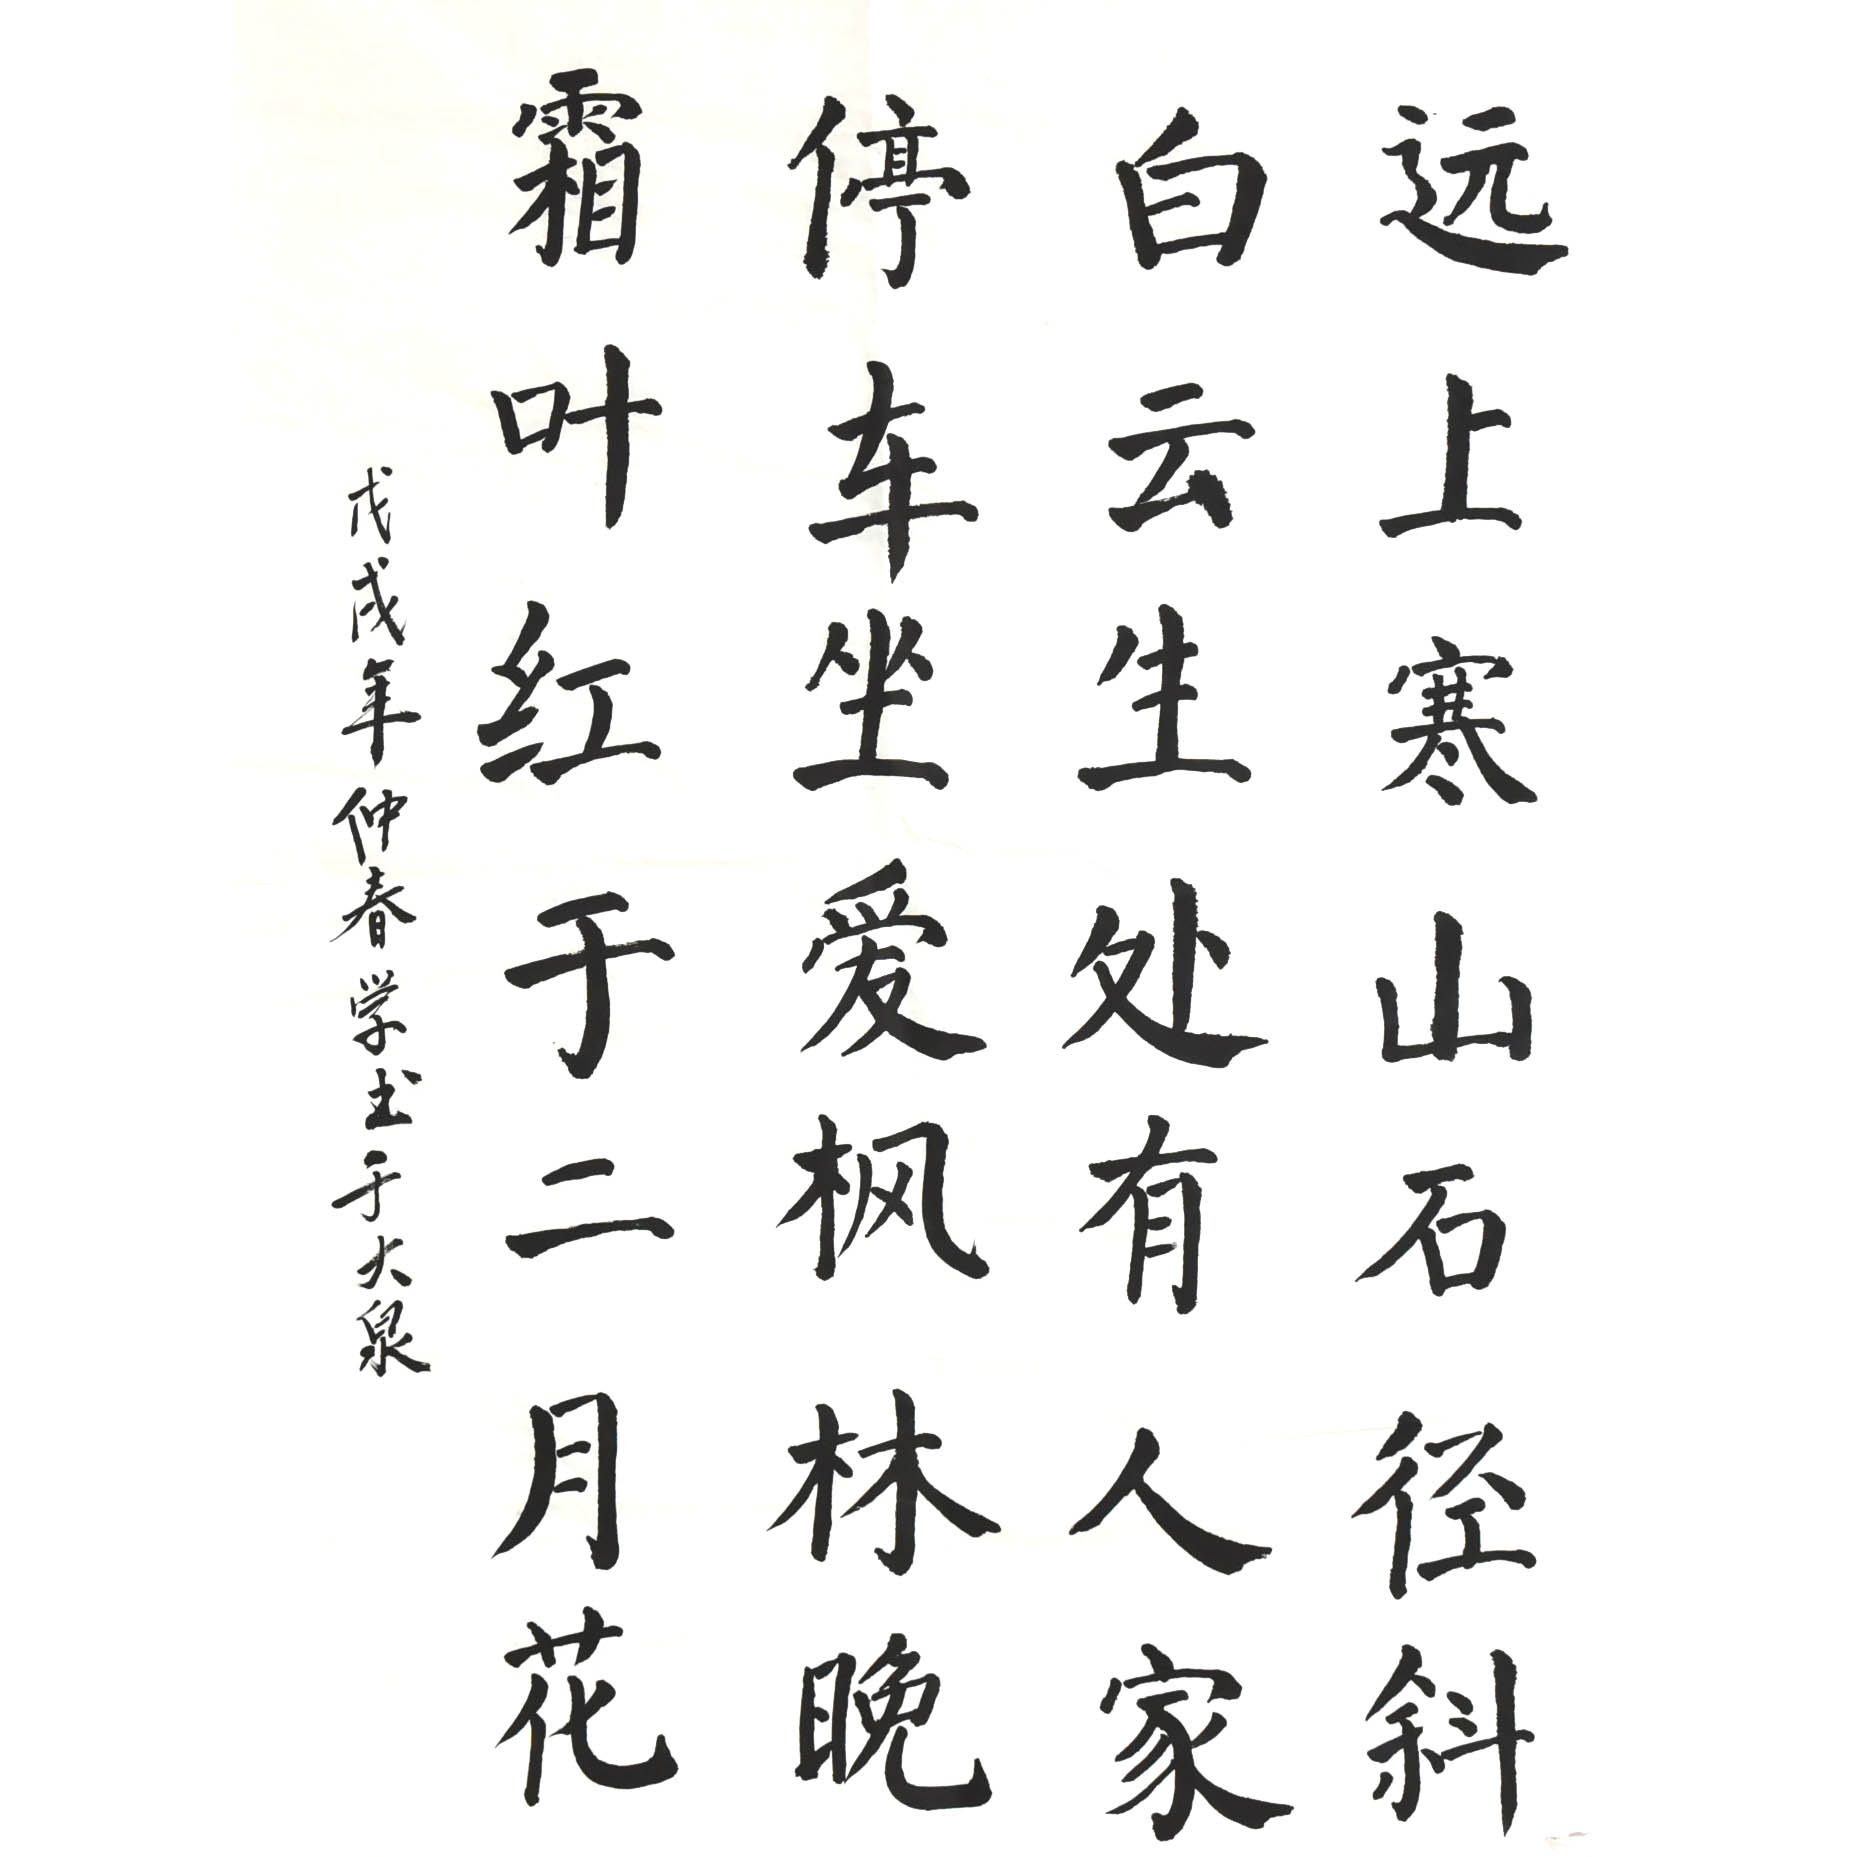 远上寒山石径斜
白云生处有人家
停车坐爱枫林晚
霜叶红于二月花
戊戌年仲春学书于大泉